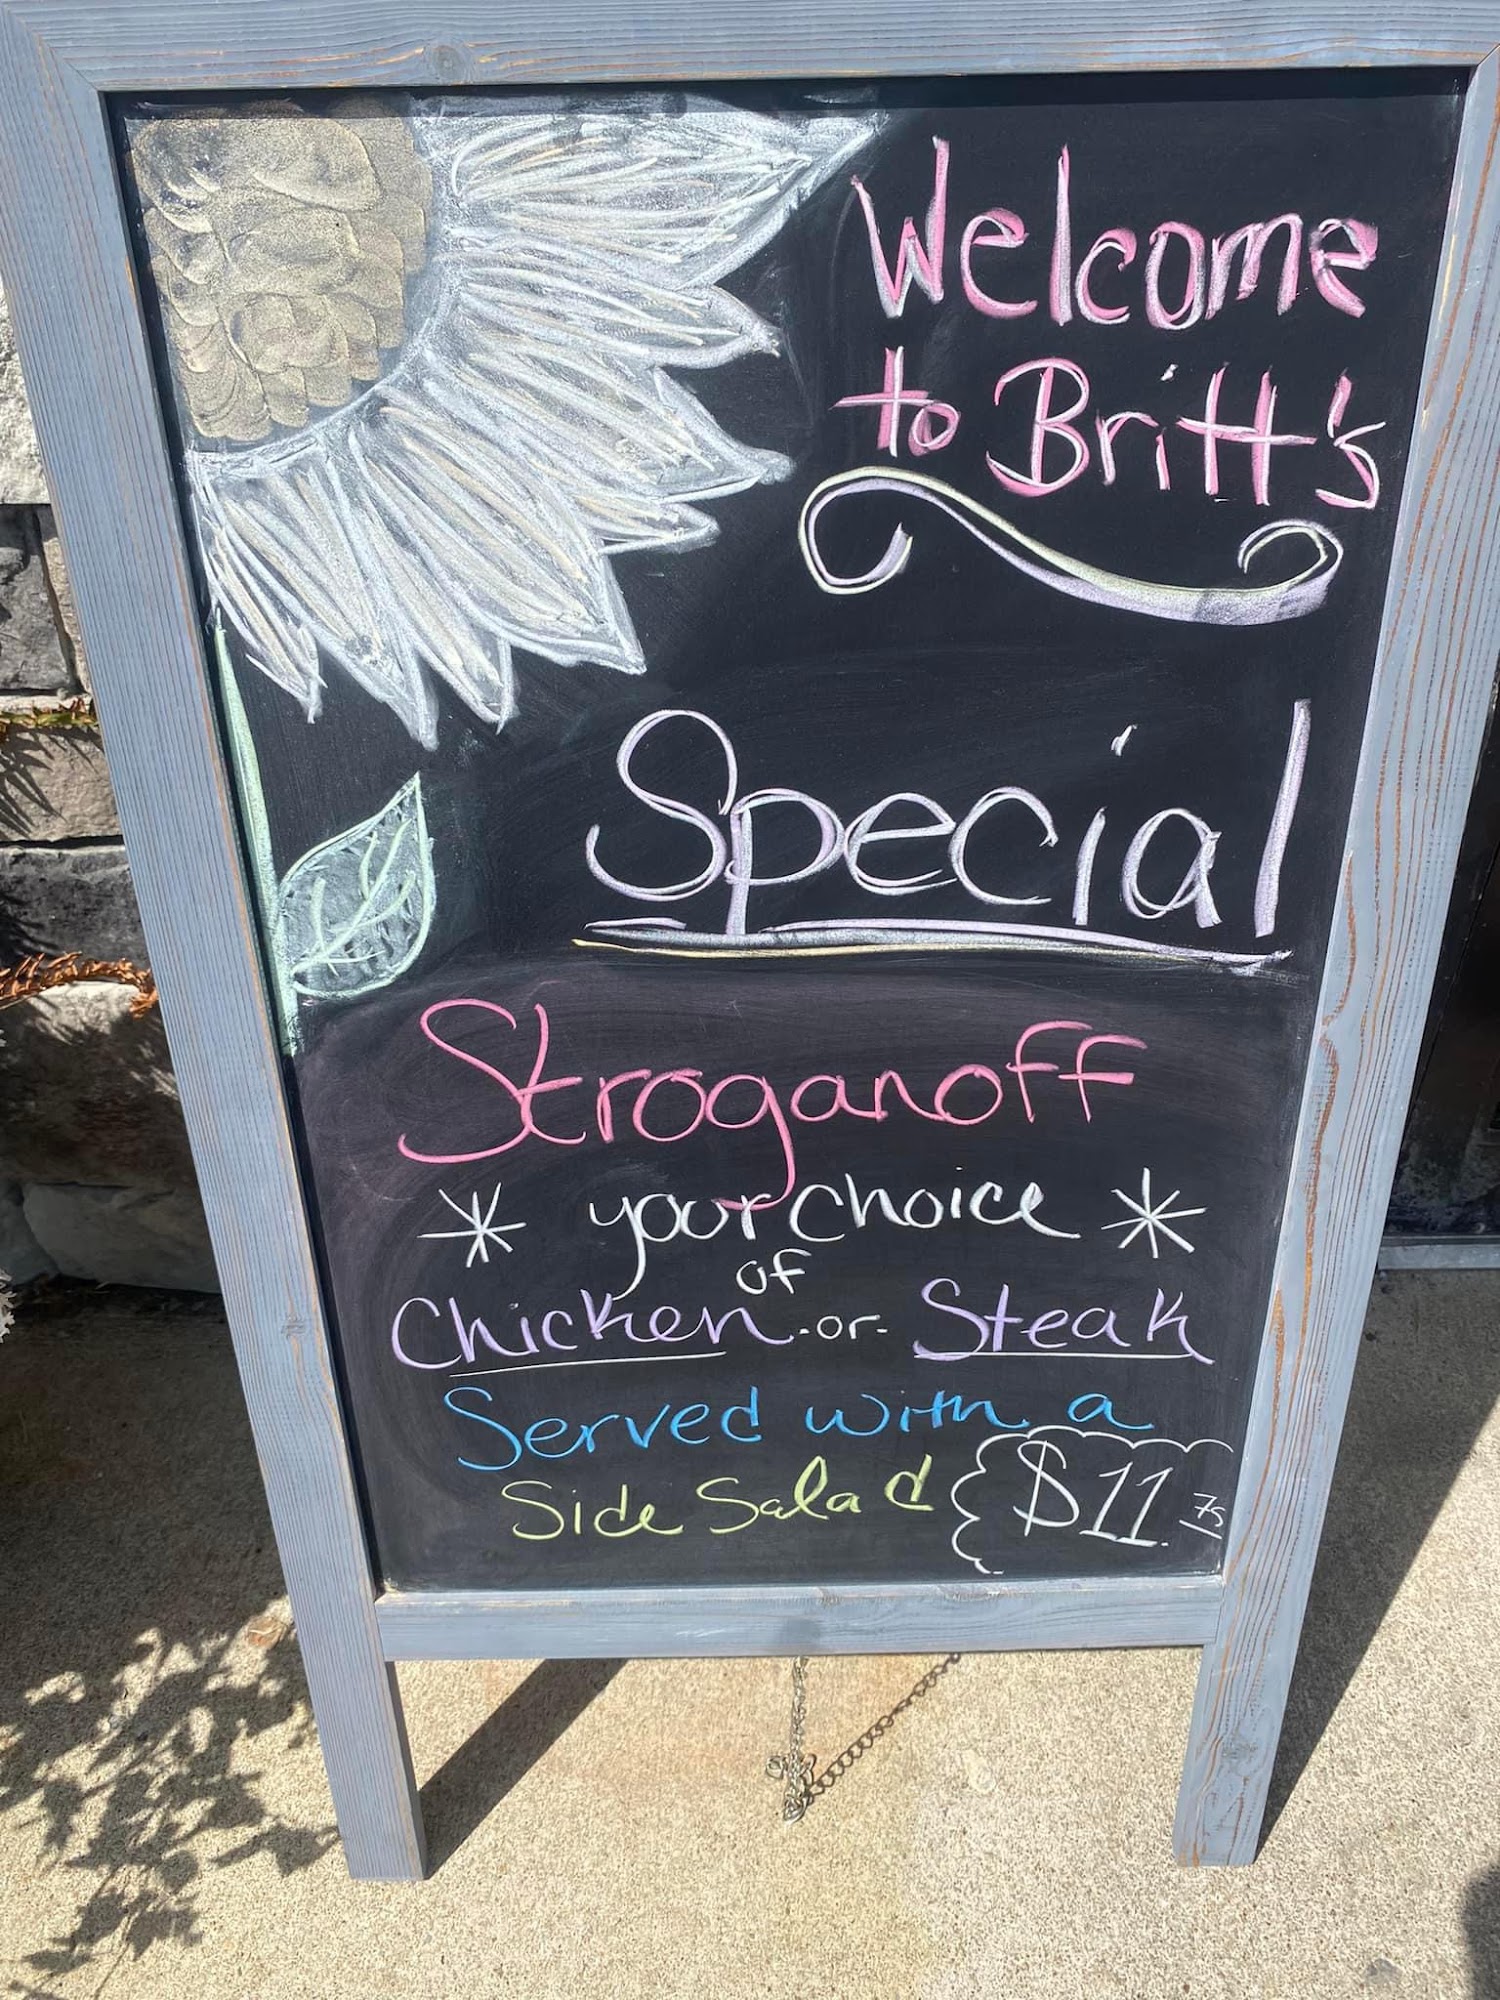 Welcome
to Britt's
Special
Stroganoff
* your choice *
of
Chicken -or- Steak
Served with a
Side Salad $11.75